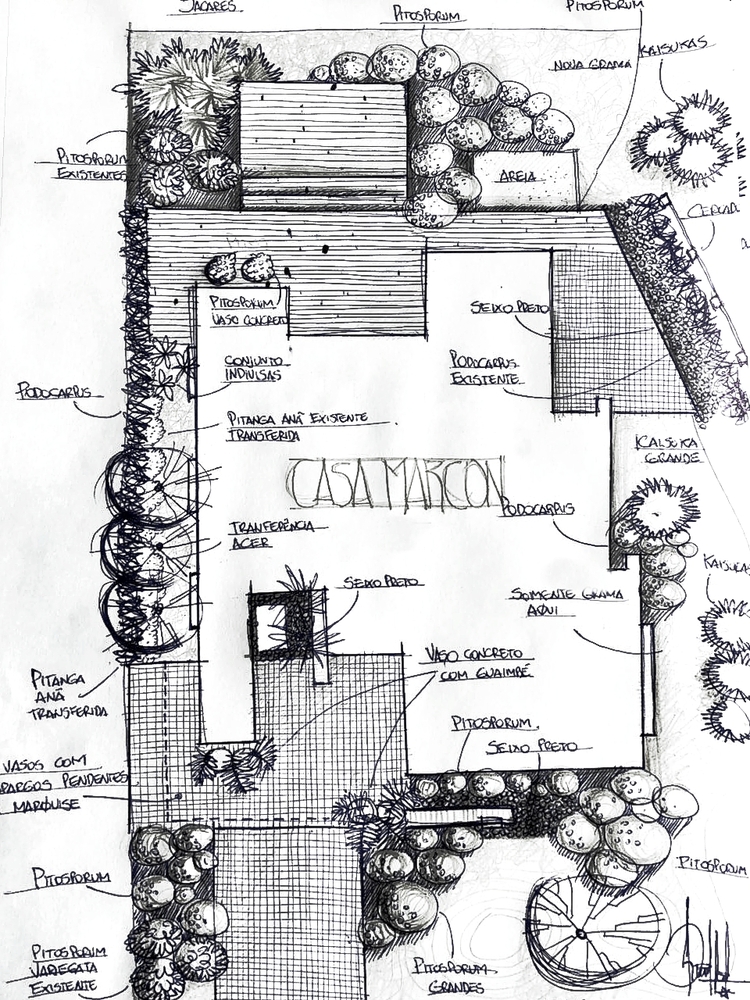 JACARES
PITOSPORUM
PITOSPORUM
KAISUKAS
NOVA GRAMA
PITOSPORUM
EXISTENTES
AREIA
PITOSPORUM
VASO CONCRETO
SEIXO PRETO
CONJUNTO
INDIVISAS
PODOCARPUS
EXISTENTE
PODOCARPUS
PITANGA ANÃ EXISTENTE
TRANSFERIDA
KAISUKA
GRANDE
CASA MARCON
PODOCARPUS
TRANFERÊNCIA
ACER
SEIXO PRETO
KAISUKAS
SOMENTE GRAMA
AQUI
VASO CONCRETO
COM GUAIMBÉ
PITANGA
ANÃ
TRANSFERIDA
PITOSPORUM
SEIXO PRETO
VASOS COM
PARGOS PENDENTES
MARQUISE
PITOSPORUM
PITOSPORUM
PITOSPORUM
VARIEGATA
EXISTENTE
PITOSPORUM
GRANDES